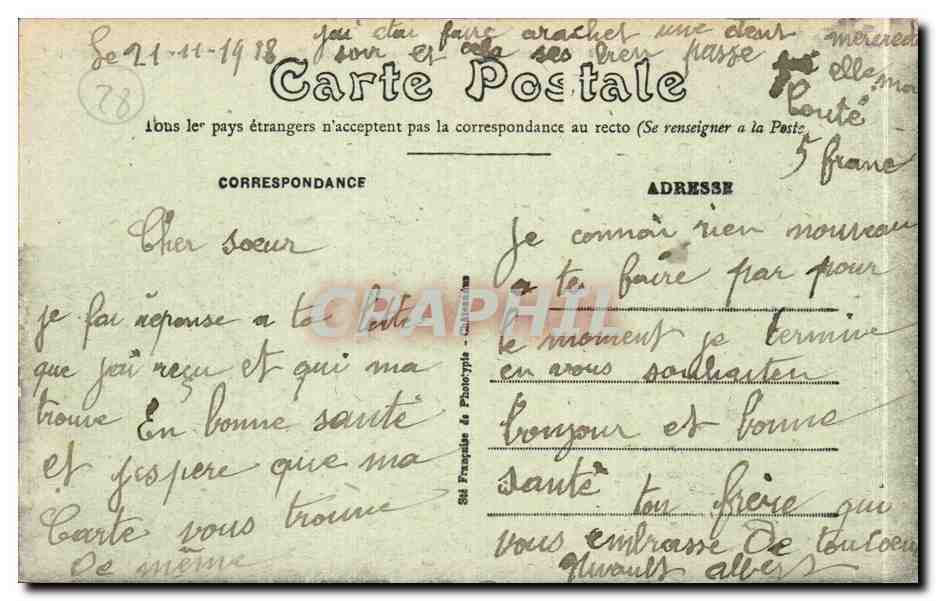 Le 21-11-1918 jai etai faire arachet une dent mercredi
soir et cela ses bien passe
elle ma
Couté
5 franc
28
Carte Postale
Tous les pays étrangers n'acceptent pas la correspondance au recto (Se renseigner a la Poste
CORRESPONDANCE
Cher soeur
je fai réponse a ta lette
que jai reçu et qui ma
trouve En bonne santé
et j'espere que ma
Carte vous trouve
De même
Sté Française de Phototypie - Châteaudun
CPAPHIL
ADRESSE
Je connai rien nouveau
a te faire par pour
le moment je termine
en vous souhaiten
bonjour et bonne
santé
ton frère qui
vous embrasse De toucoeur
albert